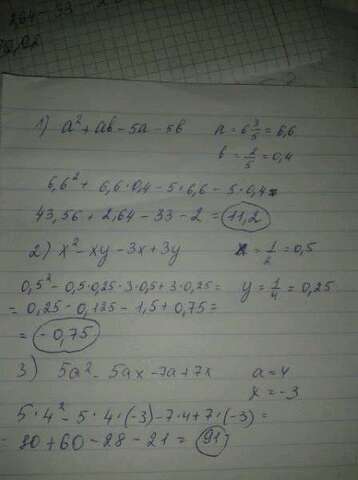 2,64 - 33 - 2
1) a² + ab - 5a - 5b a = 6 3/5 = 6,6
b = 2/5 = 0,4
6,6² + 6,6·0,4 - 5·6,6 - 5·0,4 =
43,56 + 2,64 - 33 - 2 = 11,2
2) x² - xy - 3x + 3y x = 1/2 = 0,5
0,5² - 0,5·0,25 - 3·0,5 + 3·0,25 = y = 1/4 = 0,25
= 0,25 - 0,125 - 1,5 + 0,75 =
= - 0,75
3) 5a² - 5ax - 7a + 7x a = 4
x = -3
5·4² - 5·4·(-3) - 7·4 + 7·(-3) =
= 80 + 60 - 28 - 21 = 91